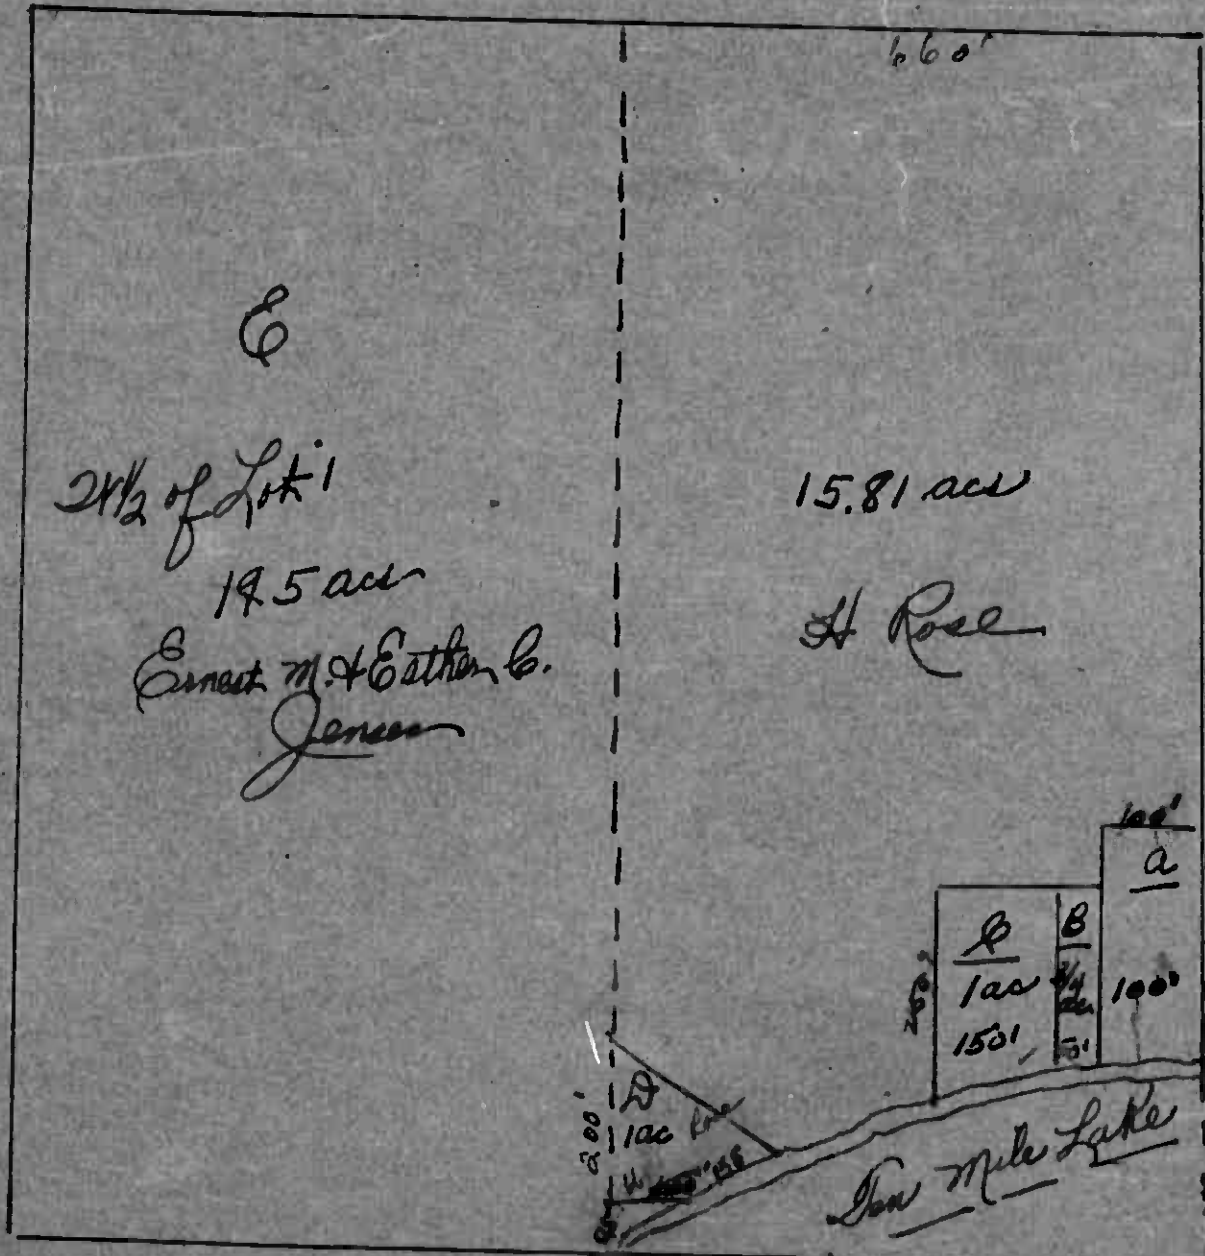 660'
E
W1/2 of Lot 1
19.5 acs
Ernest M. & Esther C.
Jensen
15.81 acs
H Rose
100'
a
C
B
1ac
100'
150'
50'
D
1ac Rose
200'
Ten Mile Lake